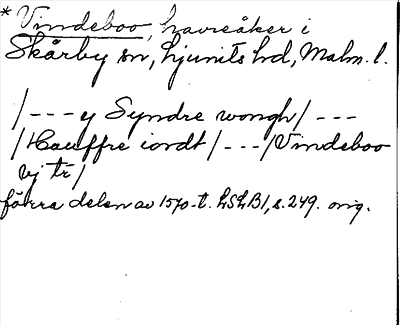 * Vindeboo, havreåker i
Skårby sn, Ljunits hd, Malm. l.
/---y Syndre wongh/---
/Hauffre iordt/---/Vindeboo
vj tr/
förra delen av 1570-t. LSLB1, s. 249. orig.